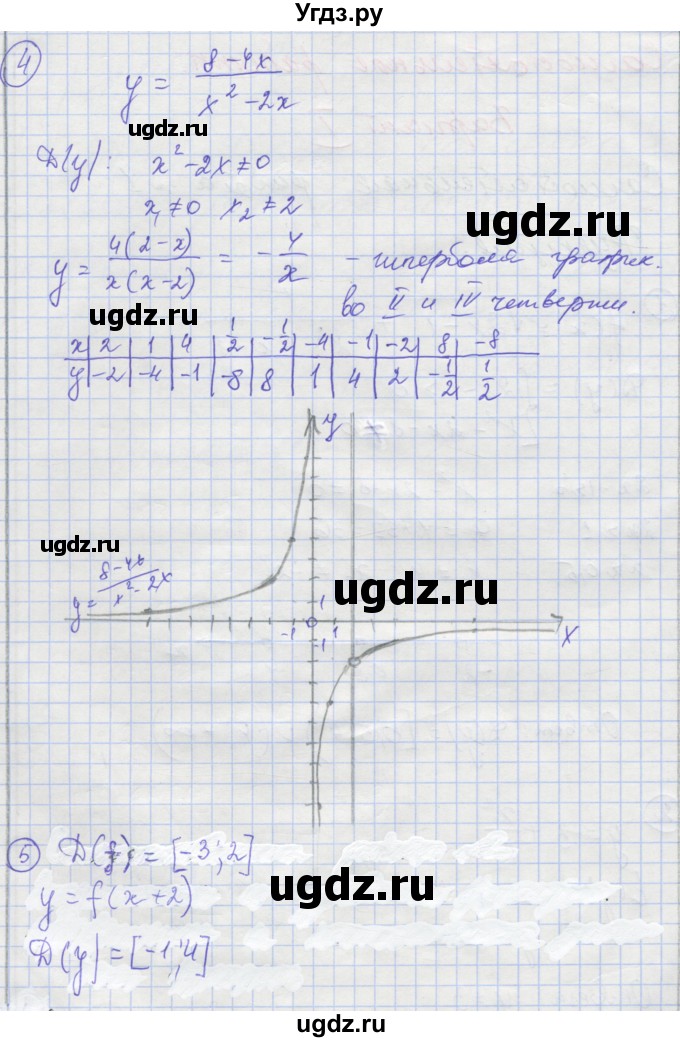 Угдз.ру
4
y = (8-4x)/(x²-2x)
Д(y): x²-2x≠0
x₁≠0 x₂≠2
y = 4(2-x)/(x(x-2)) = -4/x - гипербола график.
во II и IV четверти.
x | 2 | 1 | 4 | 1/2 | -1/2 | -4 | -1 | -2 | 8 | -8
y | -2 | -4 | -1 | -8 | 8 | 1 | 4 | 2 | -1/2 | 1/2
y
y = (8-4x)/(x²-2x)
1
-1 0 1 x
-1
5 Д(f) = [-3; 2]
y = f(x+2)
Д(y) = [-1; 4]
gdz.ru
ugdz.ru
ugdz.ru
ugdz.ru
ugdz.ru
ugdz.ru
ugdz.ru
ugdz.ru
ugdz.ru